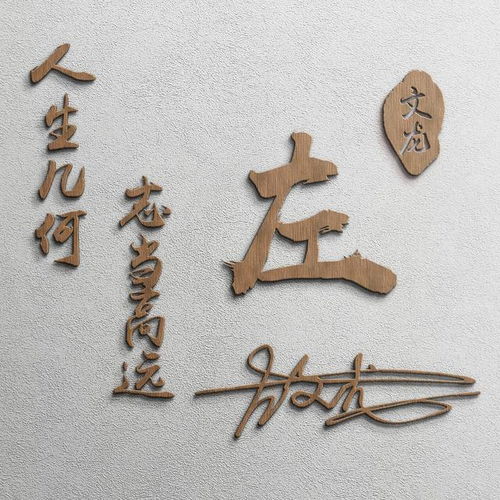 人生几何
志当高远
左
文龙